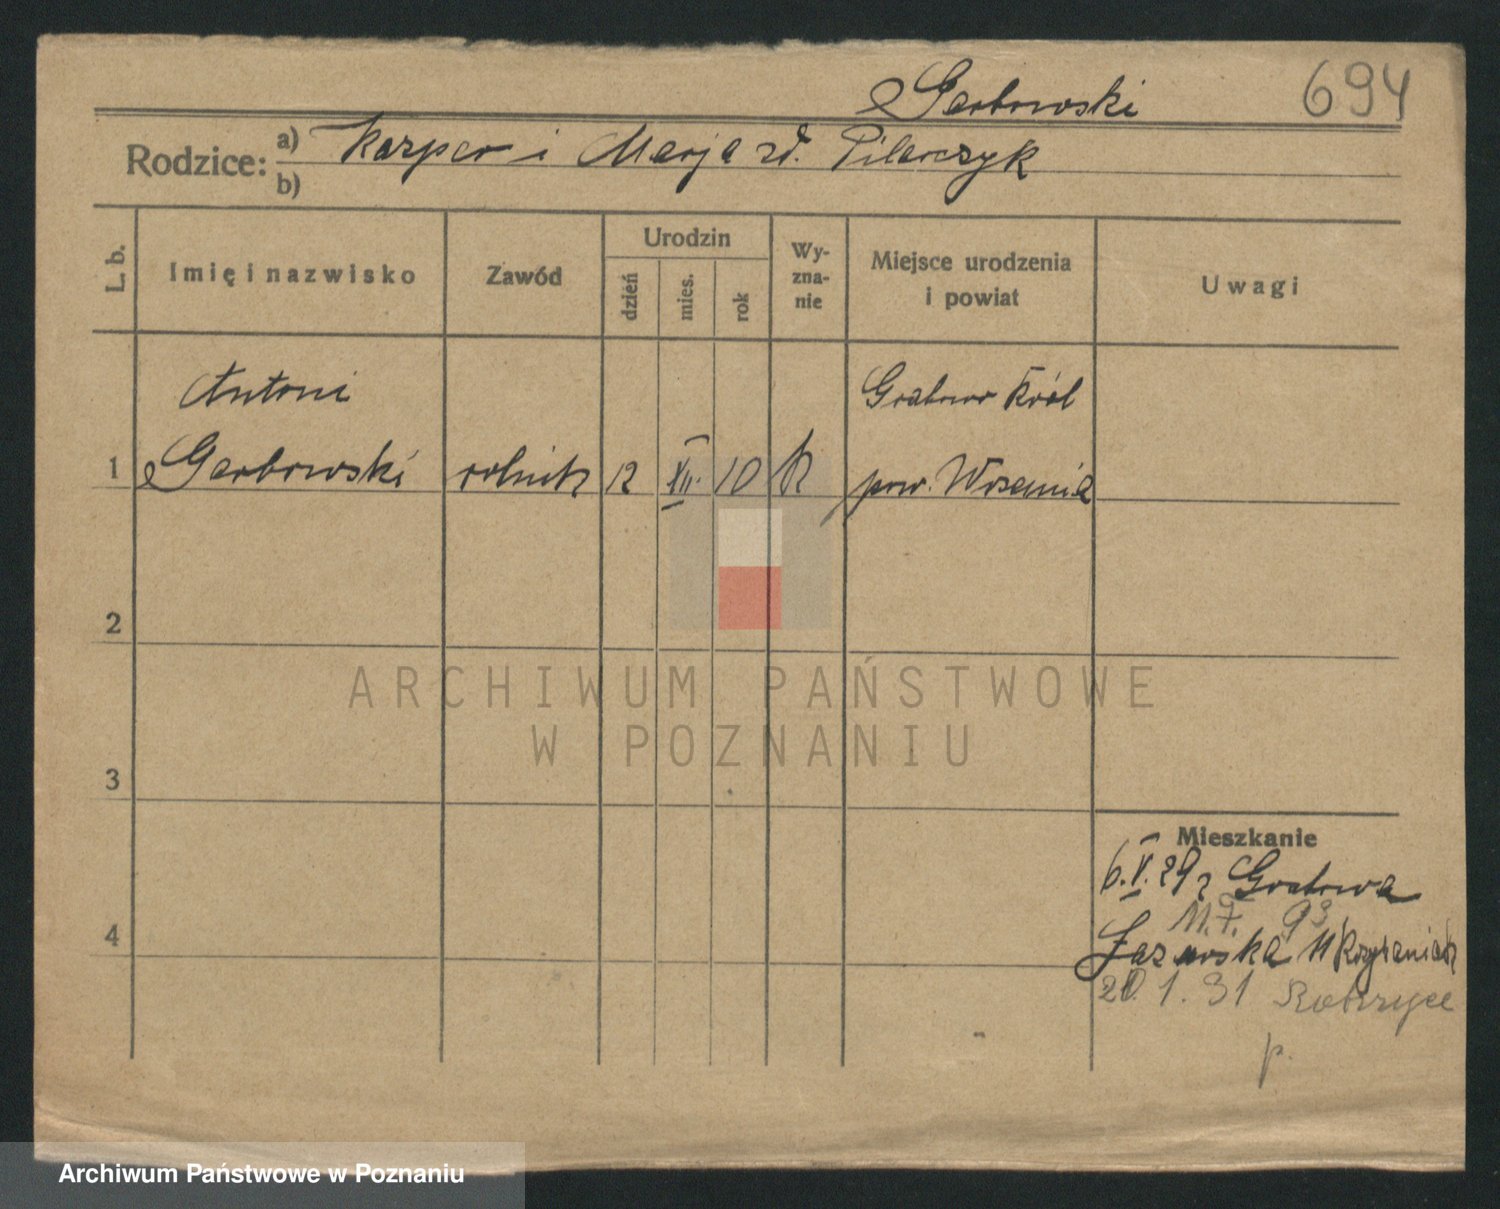 Garbowski 694
Rodzice: a) Kasper i Marja zd. Pilarczyk
b)
L. b. Imię i nazwisko Zawód Urodzin dzień mies. rok Wy-zna-nie Miejsce urodzenia i powiat Uwagi
Antoni Grabowo Król
1 Garbowski rolnik 12 XII. 10 k pow. Września
2
ARCHIWUM PAŃSTWOWE
W POZNANIU
3
Mieszkanie
6.V.29 z Grabowa
11.7. 93
4 Łazarska 11
20.1.31
p.
Archiwum Państwowe w Poznaniu